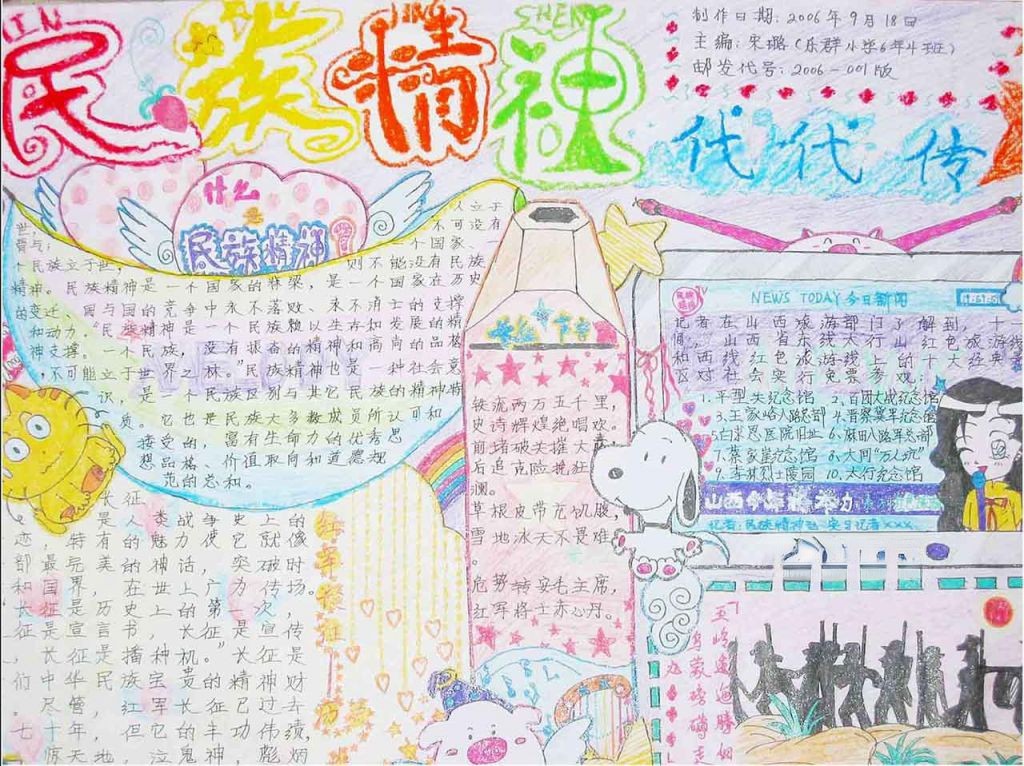 MIN ZU JING SHEN
民族精神
代代传
制作日期:2006年9月18日
主编:宋璐(乐群小学6年4班)
邮发代号:2006-001版
什么
是
民族精神
人立于
世,不可没有
一个国家、一
个民族立于世,则不能没有民族
精神。民族精神是一个国家的脊梁,是一个国家在历史
的变迁、国与国的竞争中永不落败、永不消亡的支撑
和动力。"民族精神是一个民族赖以生存如发展的精
神支撑。一个民族,没有振奋的精神和高尚的品格
,不可能立于世界之林。"民族精神也是一种社会意
识,是一个民族区别与其它民族的精神特
质。它也是民族大多数成员所认可和
接受的,富有生命力的优秀思
想品格、价值取向和道德规
范的总和。
长征
是人类战争史上的
特有的魅力使它就像
部最完美的神话,突破时
和国界,在世上广为传扬。
长征是历史上的第一次,
征是宣言书,长征是宣传
,长征是播种机。"长征是
们中华民族宝贵的精神财
尽管,红军长征已过去
七十年,但它的丰功伟绩,
惊天地,泣鬼神,彪炳
铁流两万五千里,
史诗辉煌绝唱欢。
前堵破失摧大毒,
后追克险挽狂
澜。
草根皮带充饥腹,
雪地冰天不畏难。
危势转安毛主席,
红军将士赤心丹。
NEWS TODAY 今日新闻
记者在山西旅游部门了解到,十一
期间,山西省东线太行山红色旅游线
和西线红色旅游线上的十大经典景
区对社会实行免票参观:
1.平型关纪念馆 2.百团大战纪念馆
3.王家峪八路总部 4.晋察冀军纪念馆
5.白求恩医院旧址 6.麻田八路军总部
7.蔡家崖纪念馆 8.大同"万人坑"
9.李林烈士陵园 10.太行纪念馆
记者:民族精神 实习记者×××
五岭逶迤腾细
乌蒙磅礴走